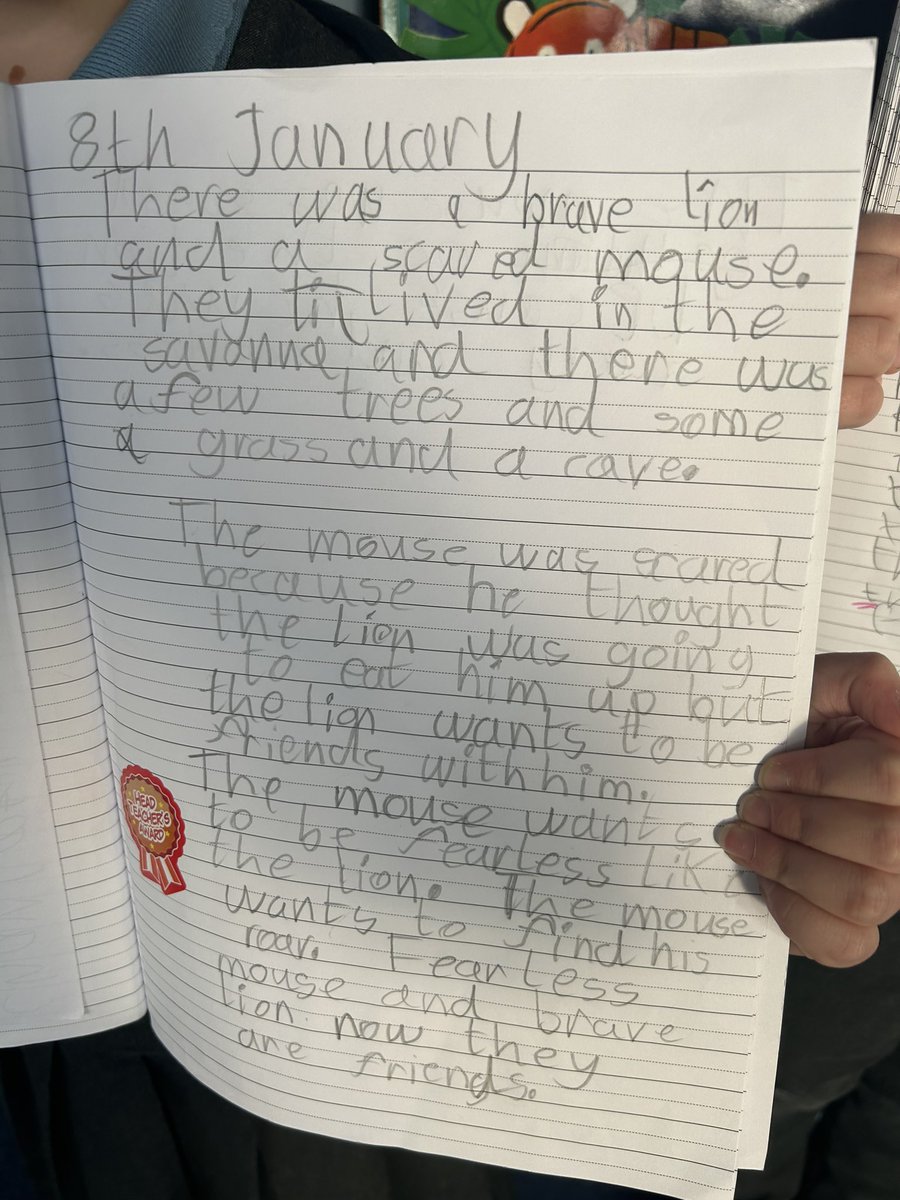 8th January
There was a brave lion
and a scared mouse.
They lived in the
savanna and there was
a few trees and some
a grass and a cave.
The mouse was scared
because he thought
the lion was going
to eat him up but
the lion wants to be
friends with him.
The mouse wants
to be fearless like
the lion. The mouse
wants to find his
roar. Fearless
mouse and brave
lion now they
are friends.
HEAD
TEACHER'S
AWARD